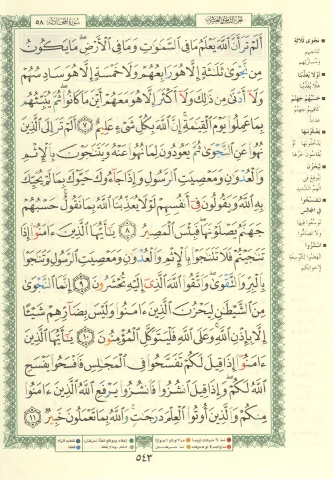 سورة المجادلة ٥٨
الجزء الثامن والعشرون
أَلَمْ تَرَ أَنَّ ٱللَّهَ يَعْلَمُ مَا فِي ٱلسَّمَٰوَٰتِ وَمَا فِي ٱلْأَرْضِ ۖ مَا يَكُونُ
مِن نَّجْوَىٰ ثَلَٰثَةٍ إِلَّا هُوَ رَابِعُهُمْ وَلَا خَمْسَةٍ إِلَّا هُوَ سَادِسُهُمْ
وَلَآ أَدْنَىٰ مِن ذَٰلِكَ وَلَآ أَكْثَرَ إِلَّا هُوَ مَعَهُمْ أَيْنَ مَا كَانُوا۟ ۖ ثُمَّ يُنَبِّئُهُم
بِمَا عَمِلُوا۟ يَوْمَ ٱلْقِيَٰمَةِ ۚ إِنَّ ٱللَّهَ بِكُلِّ شَيْءٍ عَلِيمٌ ٧ أَلَمْ تَرَ إِلَى ٱلَّذِينَ
نُهُوا۟ عَنِ ٱلنَّجْوَىٰ ثُمَّ يَعُودُونَ لِمَا نُهُوا۟ عَنْهُ وَيَتَنَٰجَوْنَ بِٱلْإِثْمِ
وَٱلْعُدْوَٰنِ وَمَعْصِيَتِ ٱلرَّسُولِ وَإِذَا جَآءُوكَ حَيَّوْكَ بِمَا لَمْ يُحَيِّكَ
بِهِ ٱللَّهُ وَيَقُولُونَ فِيٓ أَنفُسِهِمْ لَوْلَا يُعَذِّبُنَا ٱللَّهُ بِمَا نَقُولُ ۚ حَسْبُهُمْ
جَهَنَّمُ يَصْلَوْنَهَا ۖ فَبِئْسَ ٱلْمَصِيرُ ٨ يَٰٓأَيُّهَا ٱلَّذِينَ ءَامَنُوٓا۟ إِذَا
تَنَٰجَيْتُمْ فَلَا تَتَنَٰجَوْا۟ بِٱلْإِثْمِ وَٱلْعُدْوَٰنِ وَمَعْصِيَتِ ٱلرَّسُولِ وَتَنَٰجَوْا۟
بِٱلْبِرِّ وَٱلتَّقْوَىٰ ۖ وَٱتَّقُوا۟ ٱللَّهَ ٱلَّذِيٓ إِلَيْهِ تُحْشَرُونَ ٩ إِنَّمَا ٱلنَّجْوَىٰ
مِنَ ٱلشَّيْطَٰنِ لِيَحْزُنَ ٱلَّذِينَ ءَامَنُوا۟ وَلَيْسَ بِضَآرِّهِمْ شَيْـًٔا
إِلَّا بِإِذْنِ ٱللَّهِ ۚ وَعَلَى ٱللَّهِ فَلْيَتَوَكَّلِ ٱلْمُؤْمِنُونَ ١٠ يَٰٓأَيُّهَا ٱلَّذِينَ
ءَامَنُوٓا۟ إِذَا قِيلَ لَكُمْ تَفَسَّحُوا۟ فِي ٱلْمَجَٰلِسِ فَٱفْسَحُوا۟ يَفْسَحِ
ٱللَّهُ لَكُمْ ۖ وَإِذَا قِيلَ ٱنشُزُوا۟ فَٱنشُزُوا۟ يَرْفَعِ ٱللَّهُ ٱلَّذِينَ ءَامَنُوا۟
مِنكُمْ وَٱلَّذِينَ أُوتُوا۟ ٱلْعِلْمَ دَرَجَٰتٍ ۚ وَٱللَّهُ بِمَا تَعْمَلُونَ خَبِيرٌ ١١
نجوى ثلاثة
لولا يعذبنا
حسبهم جهنم
يصلونها
ليحزن
تفسحوا في المجالس
انشزوا
٥٤٣